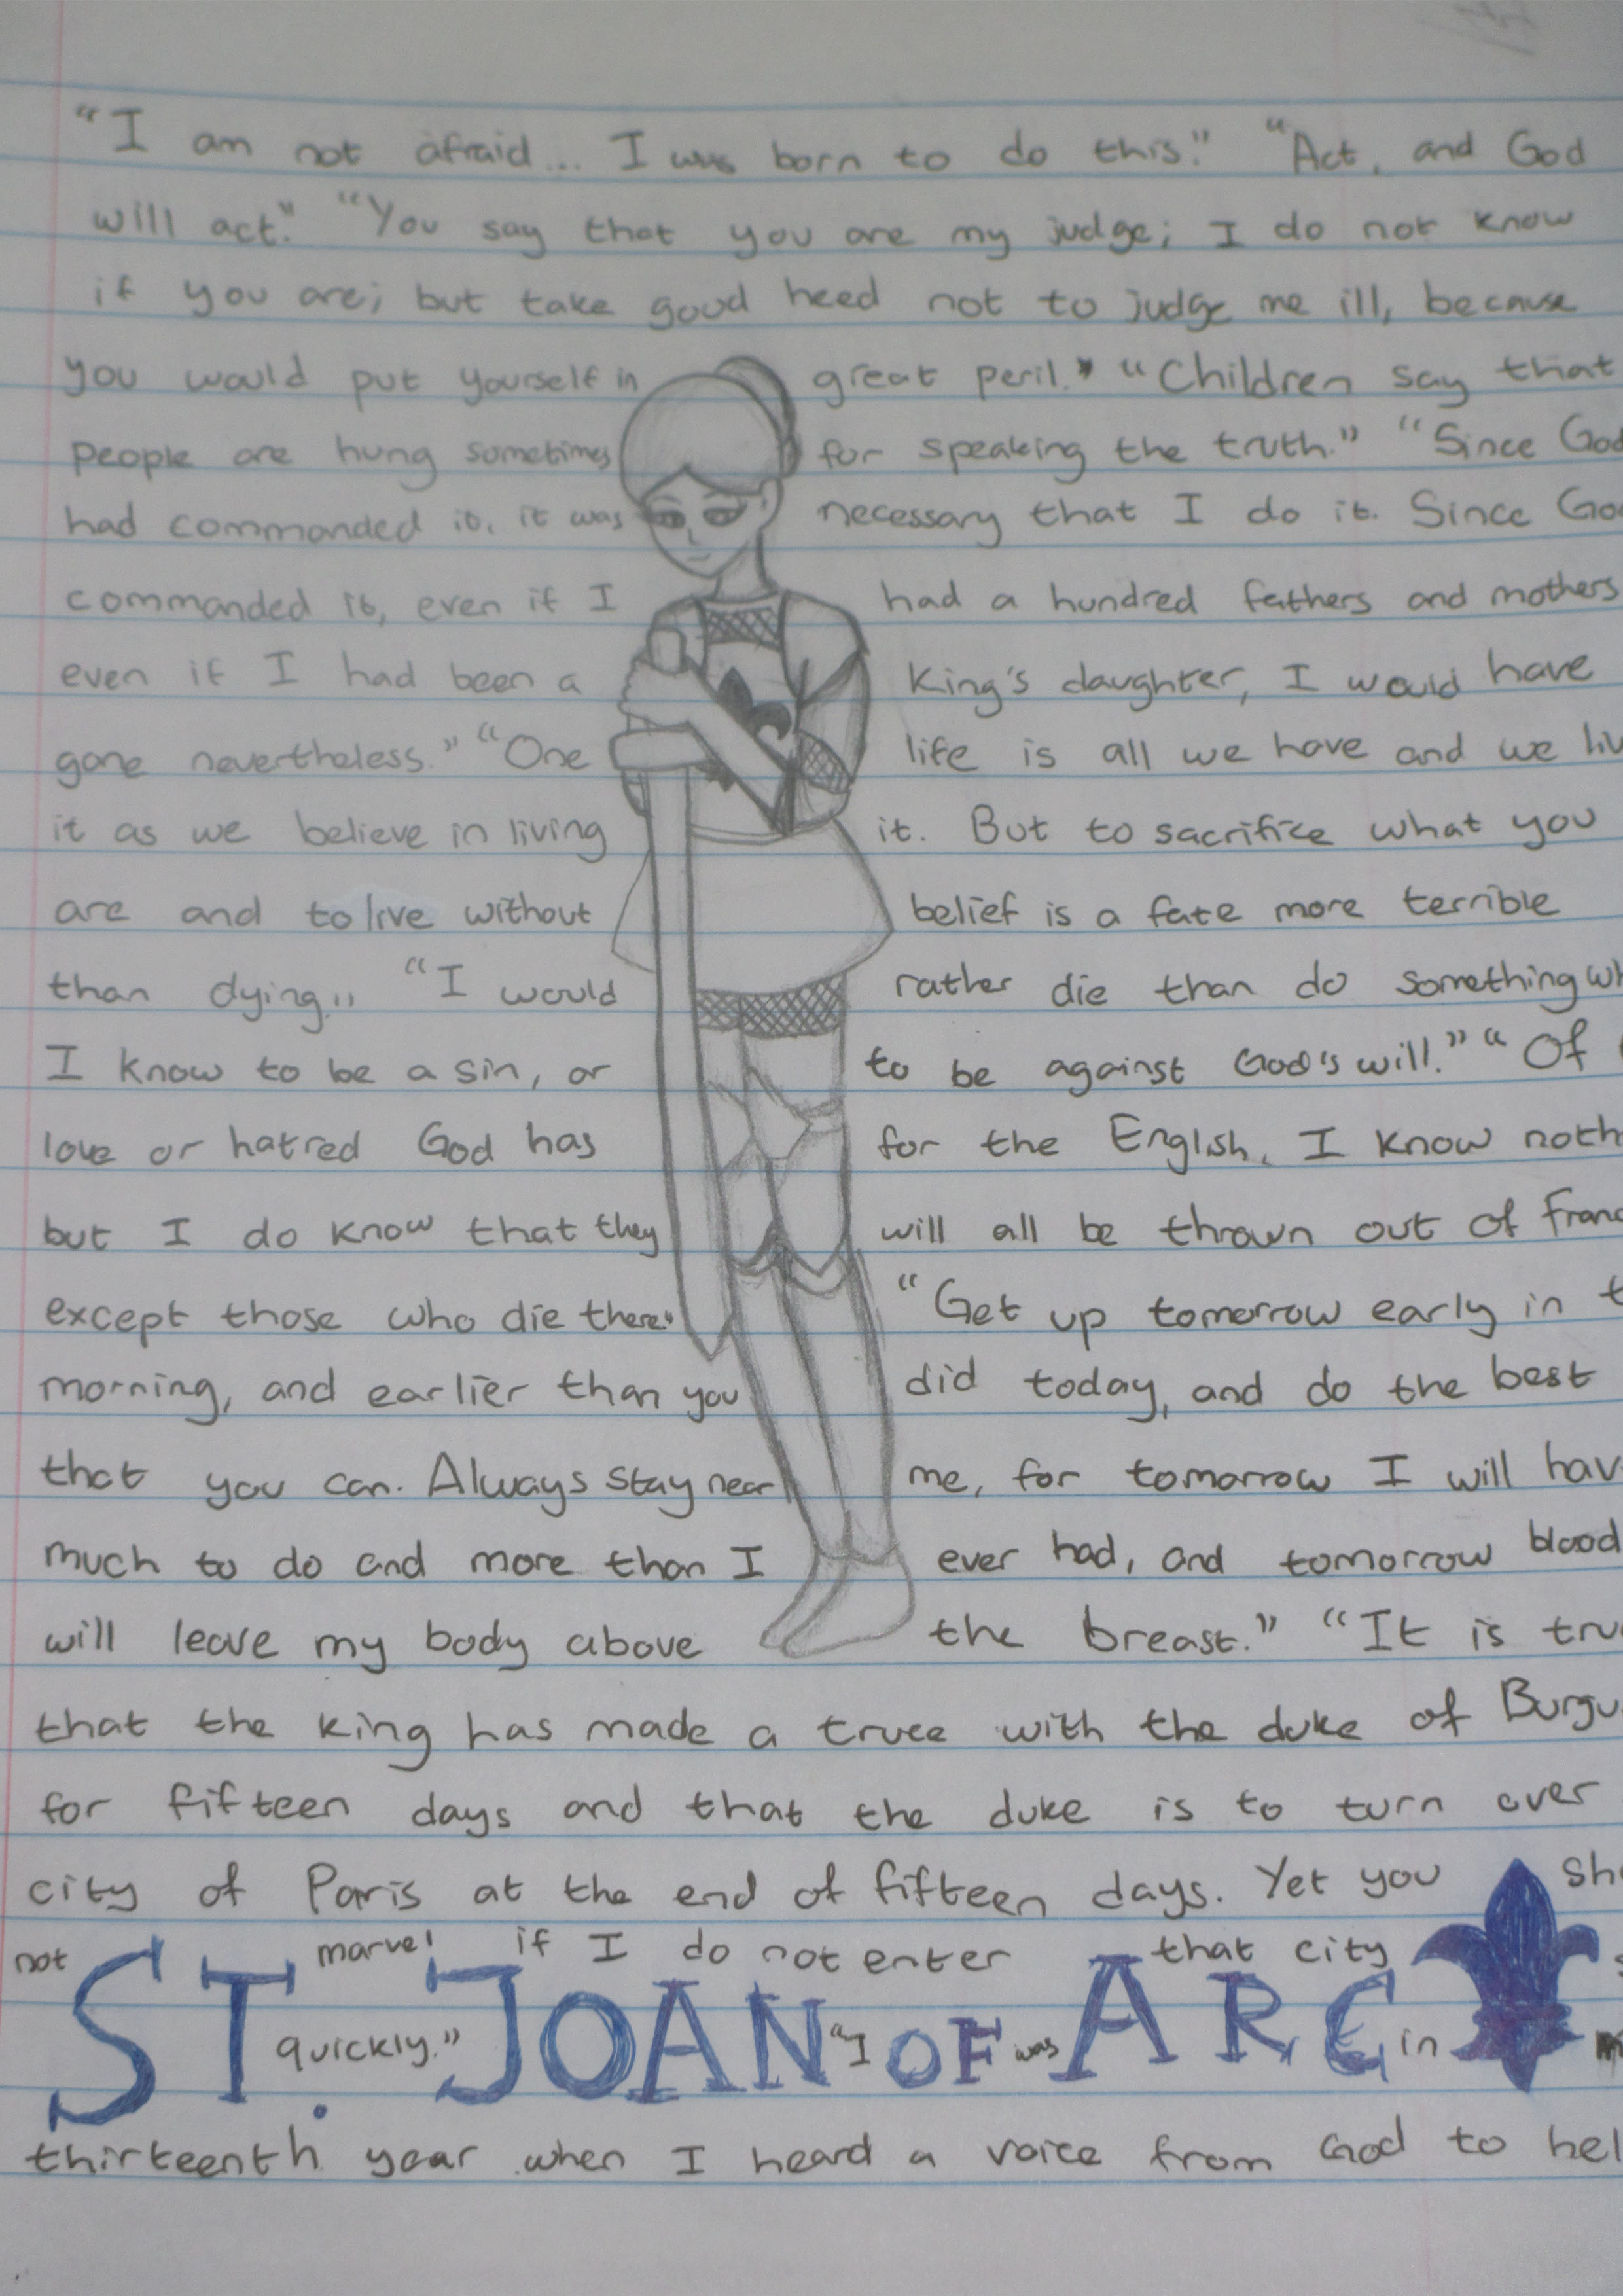 "I am not afraid... I was born to do this." "Act, and God
will act." "You say that you are my judge; I do not know
if you are; but take good heed not to judge me ill, because
you would put yourself in great peril." "Children say that
people are hung sometimes for speaking the truth." "Since God
had commanded it, it was necessary that I do it. Since Go
commanded it, even if I had a hundred fathers and mothers
even if I had been a King's daughter, I would have
gone nevertheless." "One life is all we have and we liv
it as we believe in living it. But to sacrifice what you
are and to live without belief is a fate more terrible
than dying." "I would rather die than do something wh
I know to be a sin, or to be against God's will." "Of
love or hatred God has for the English, I know noth
but I do know that they will all be thrown out of Franc
except those who die there." "Get up tomorrow early in t
morning, and earlier than you did today, and do the best
that you can. Always stay near me, for tomorrow I will hav
much to do and more than I ever had, and tomorrow blood
will leave my body above the breast." "It is tru
that the king has made a truce with the duke of Burgu
for fifteen days and that the duke is to turn over
city of Paris at the end of fifteen days. Yet you sh
not marvel if I do not enter that city s
quickly." "I was in
ST. JOAN OF ARC
thirteenth year when I heard a voice from God to hel